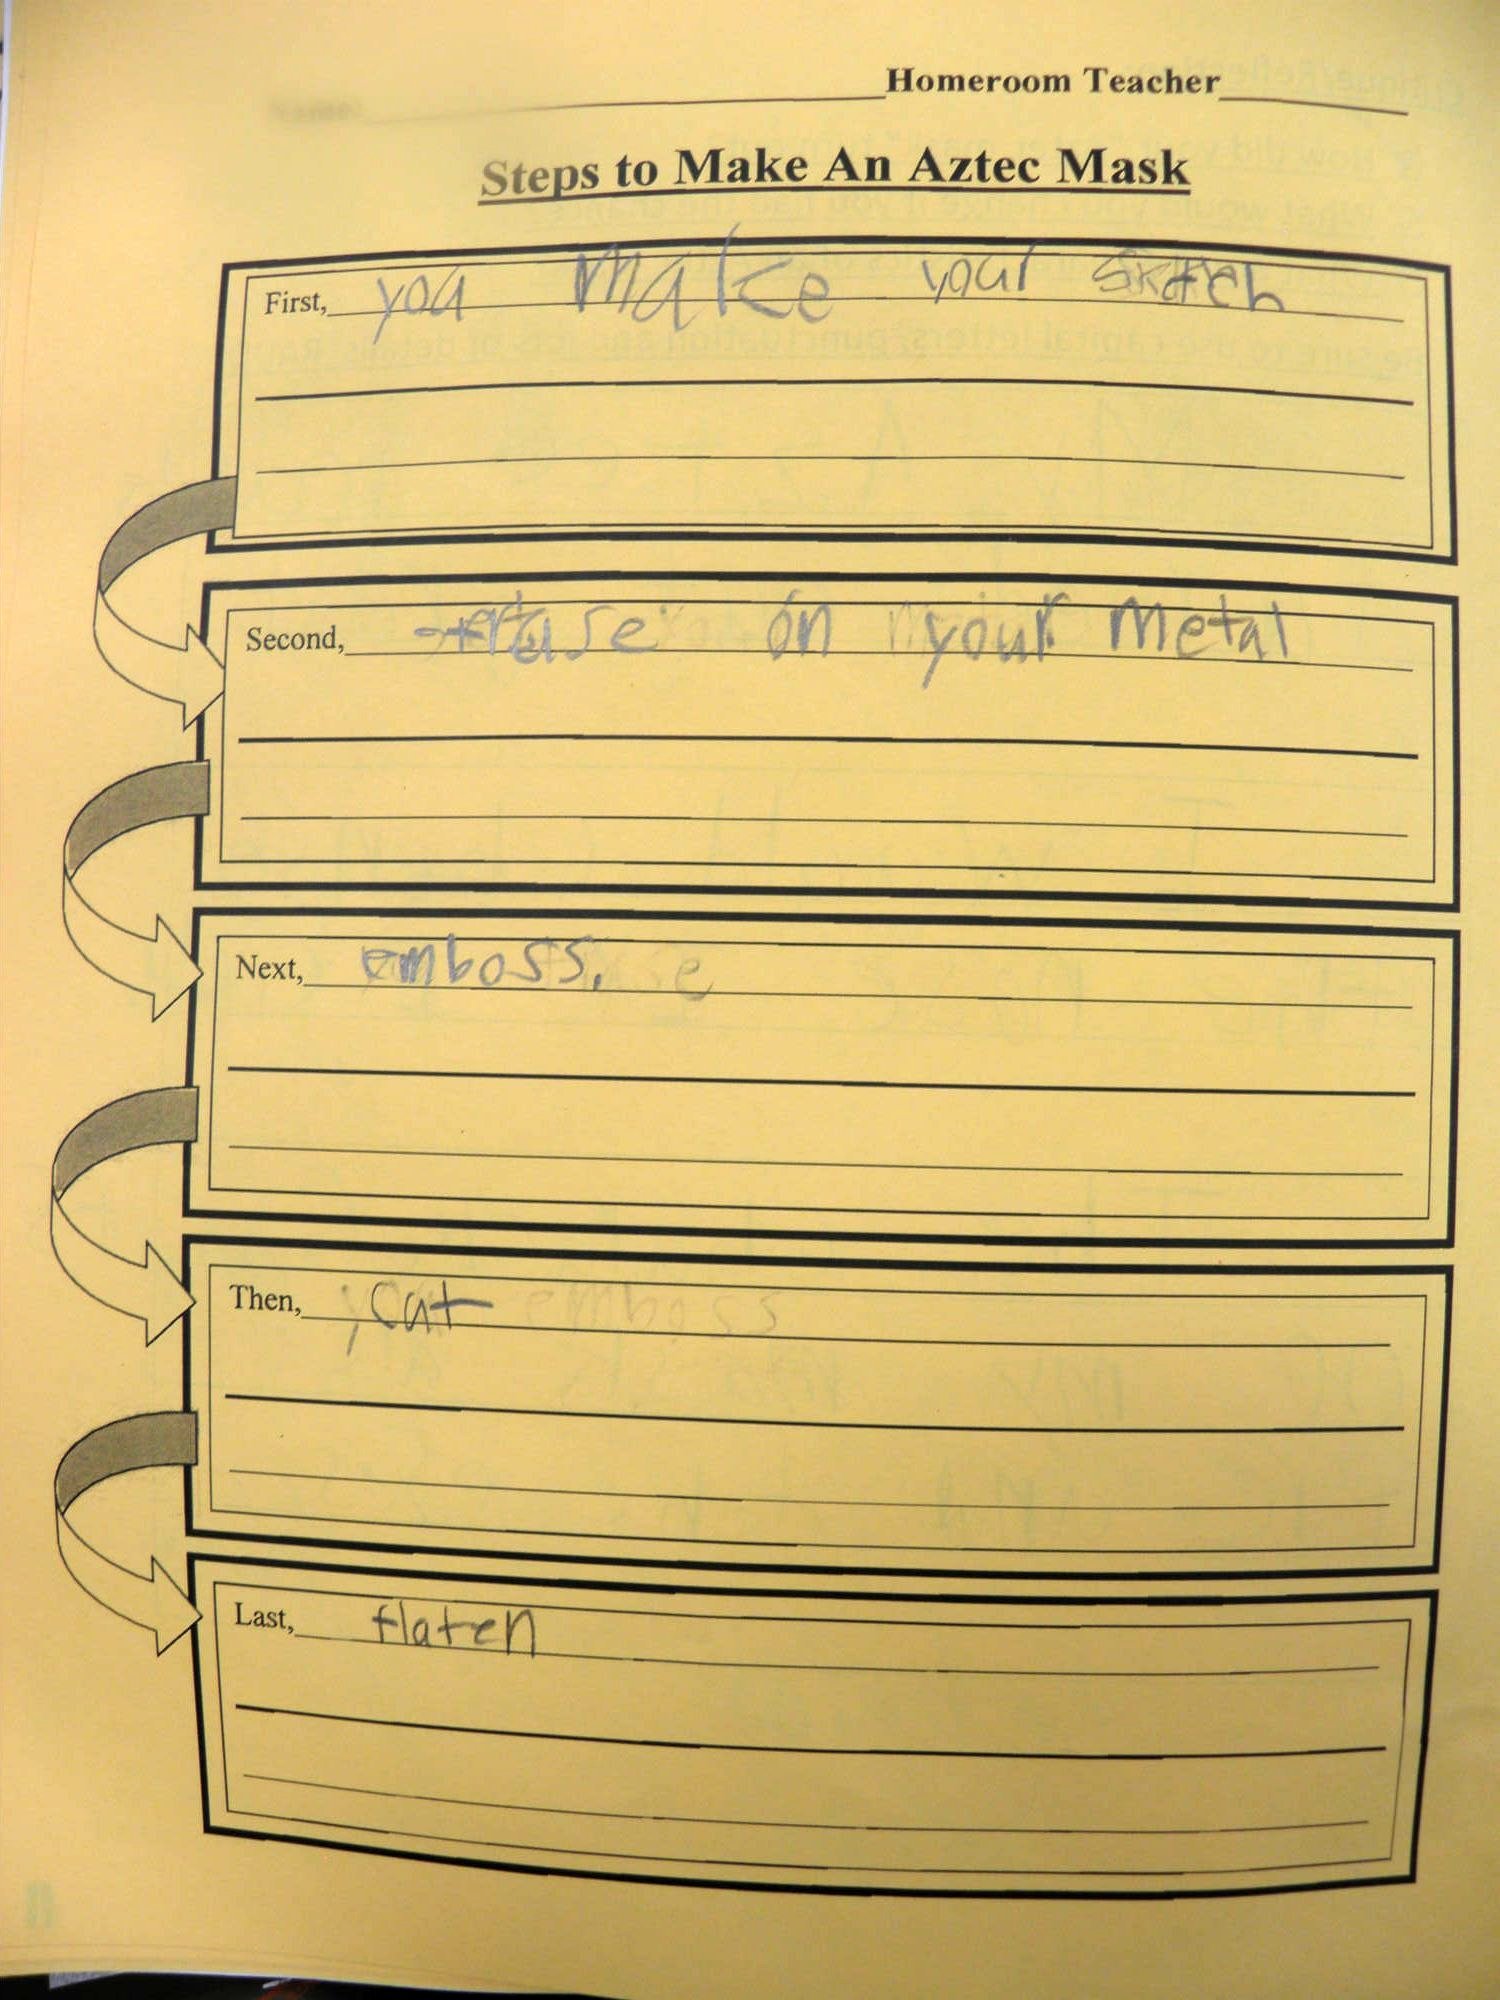 Homeroom Teacher
Steps to Make An Aztec Mask
First, you make your sketch
Second, on your metal
Next, emboss.
Then, cut
Last, flaten